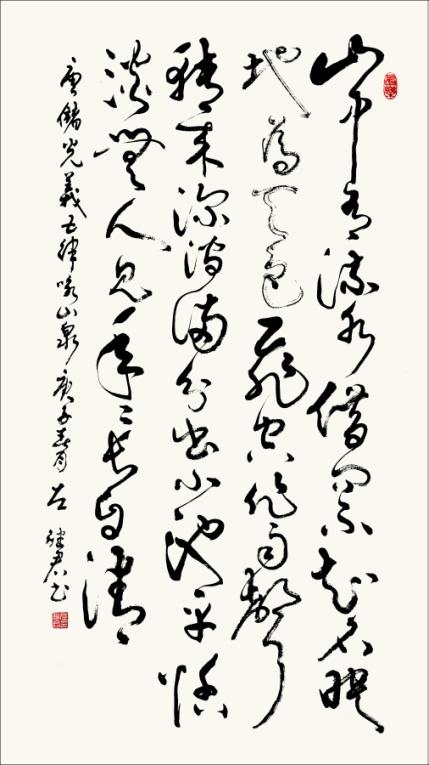 山中有流水借问不知名映
地為天色飛空作雨聲
轉来深澗滿分出小池平恬
淡無人見年〻長自清
唐儲光義五律咏山泉庚子春月左继君书